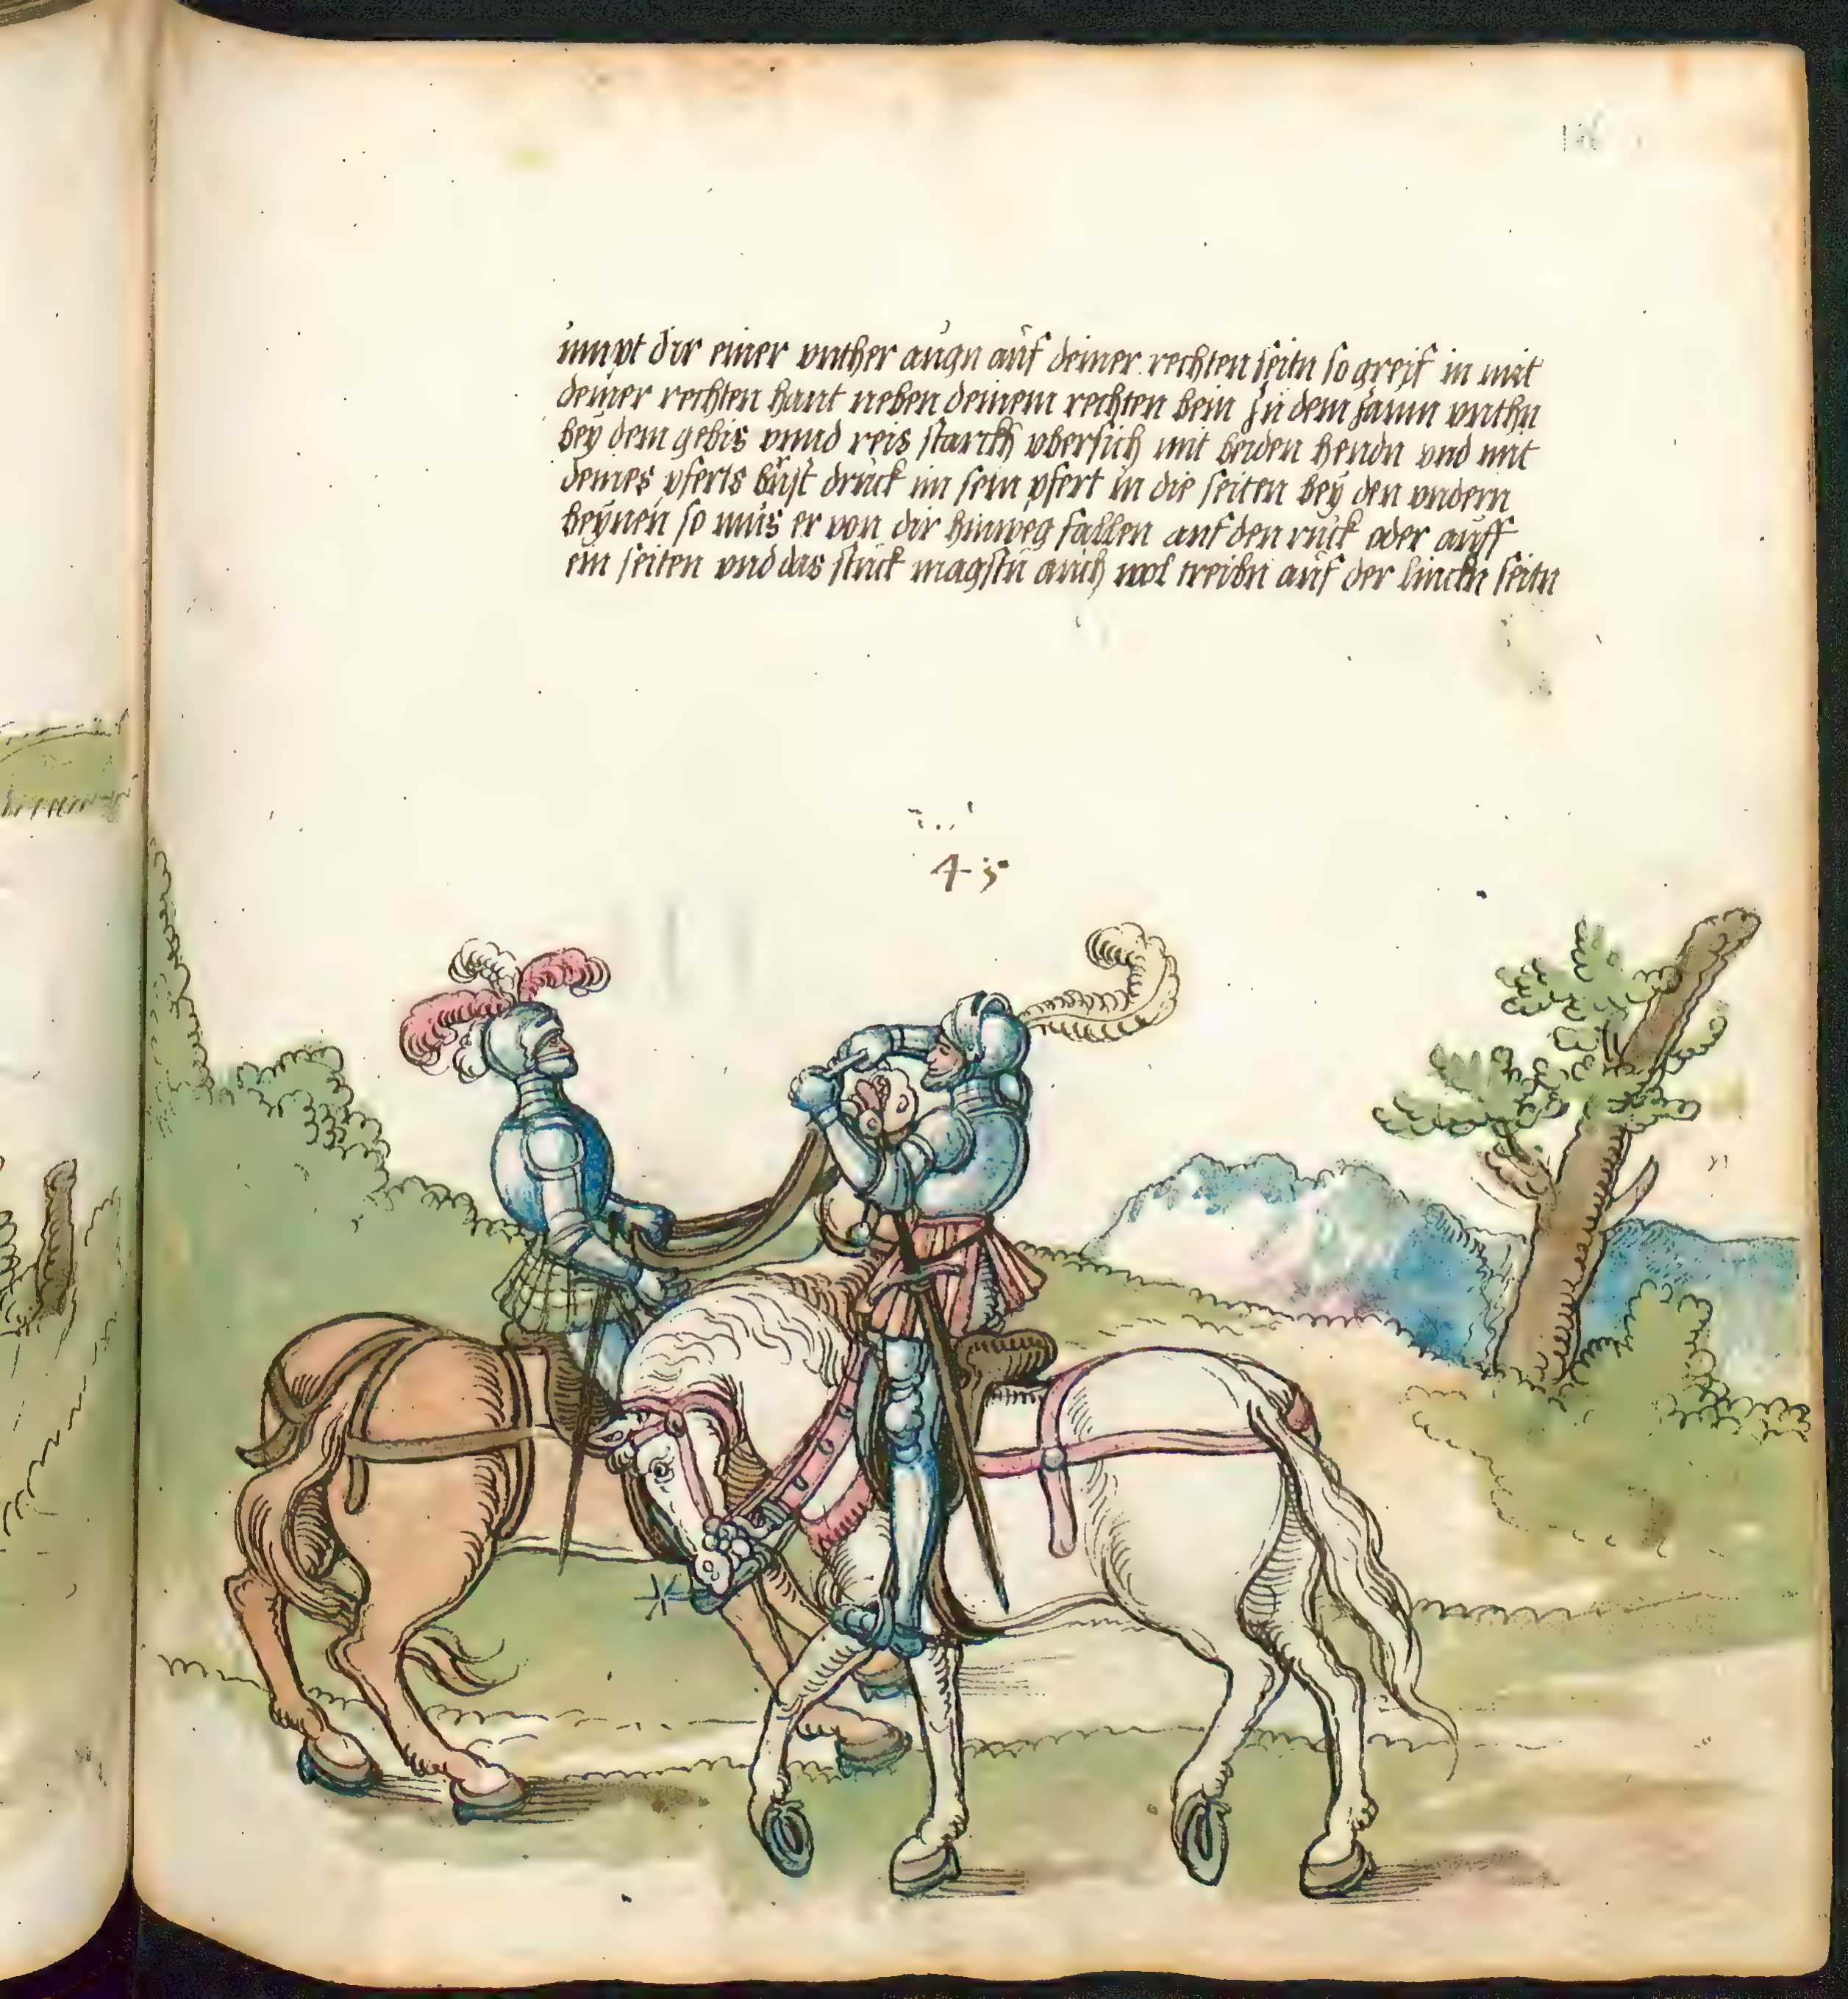 impt dir einer vnther augn auf deiner rechten seitn so greif in mit
deiner rechten hant neben deinem rechten bein zu dem zaum vnthn
bey dem gebis vnnd reis starckh vbersich mit beiden hendn vnd mit
deines pferts brust druck im sein pfert in die seiten bey den vndern
beynen so mus er von dir hinweg fallen auf den ruck oder auff
ein seiten vnd das stuck magstu auch wol treibn auf der linckn seitn
45